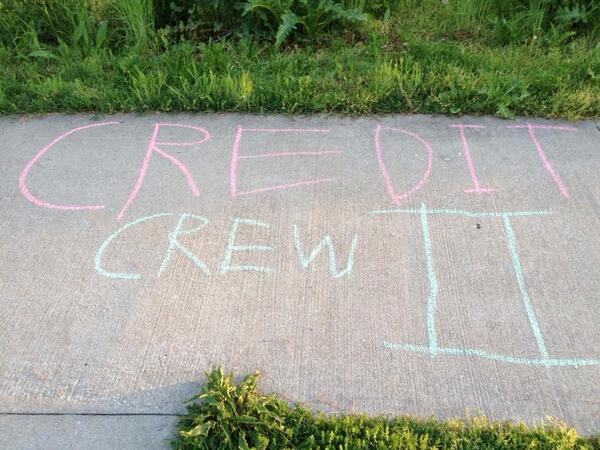 CREDIT
CREW II